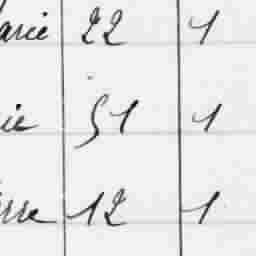 arie 22 1
ie 51 1
rre 12 1